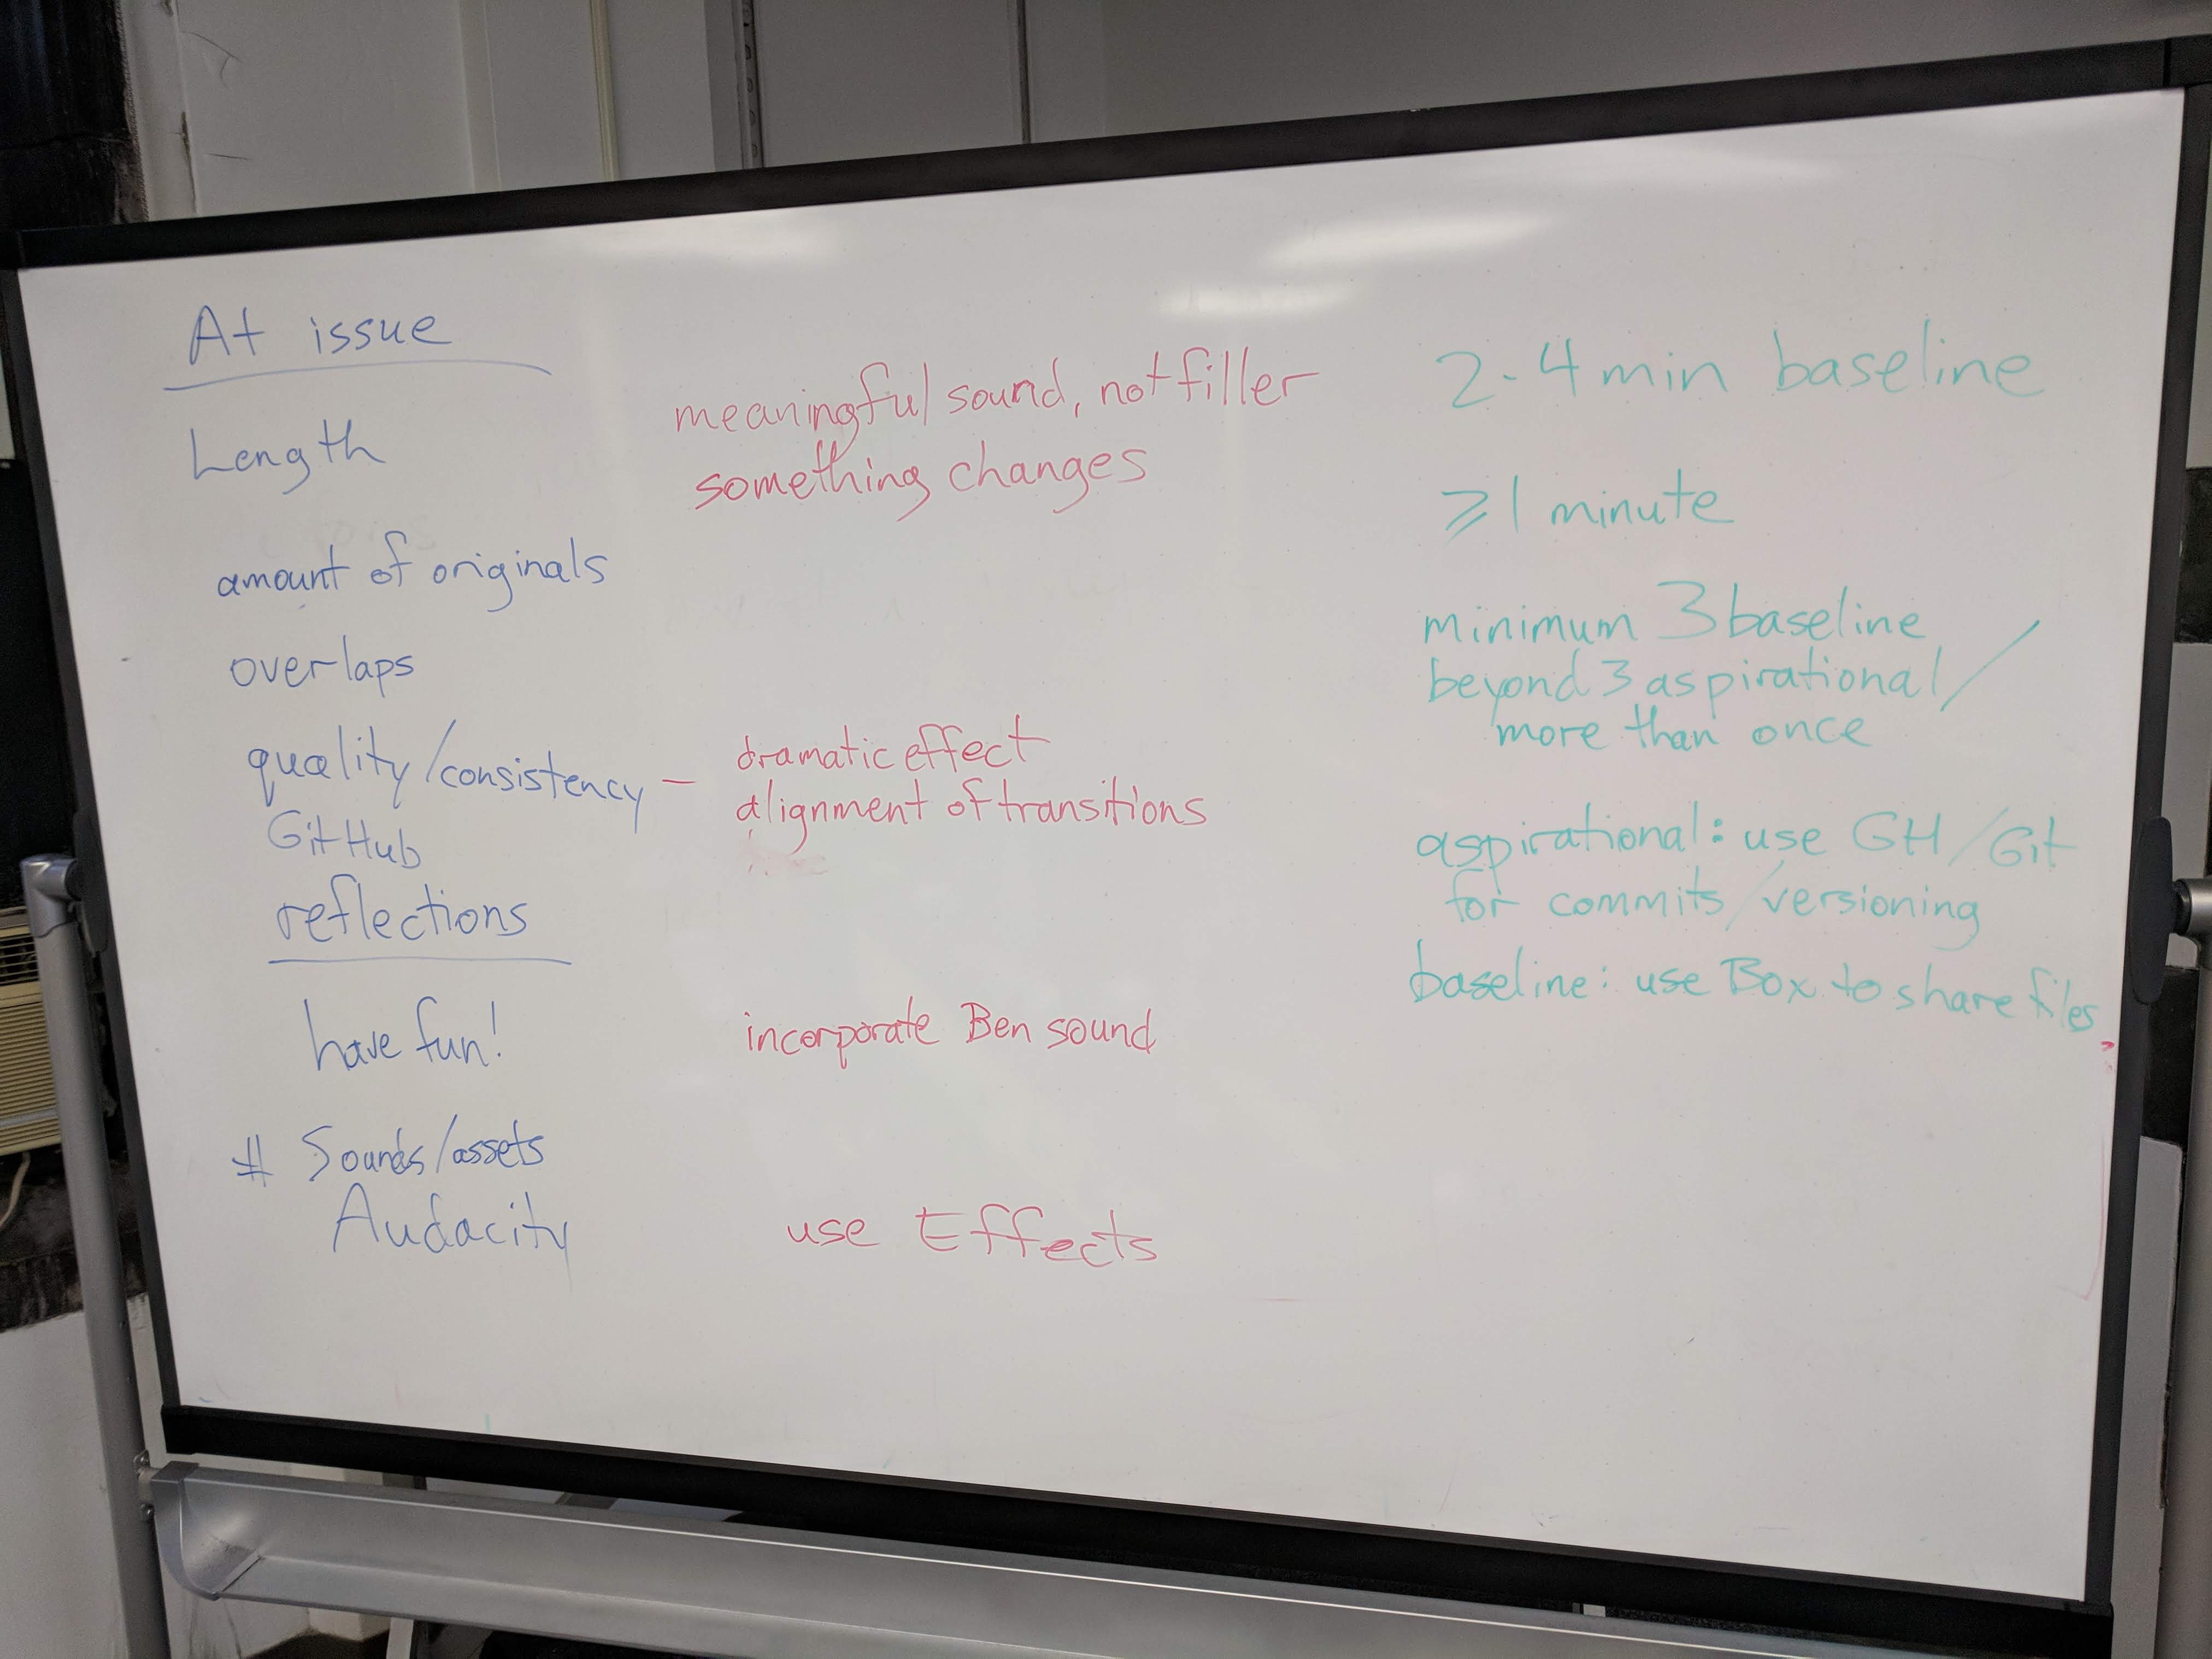 At issue
Length
amount of originals
overlaps
quality/consistency –
GitHub
reflections
have fun!
# Sounds/assets
Audacity
meaningful sound, not filler
something changes
dramatic effect
alignment of transitions
incorporate Ben sound
use Effects
2-4 min baseline
⩾1 minute
minimum 3 baseline
beyond 3 aspirational/
more than once
aspirational: use GH/Git
for commits/versioning
baseline: use Box to share files